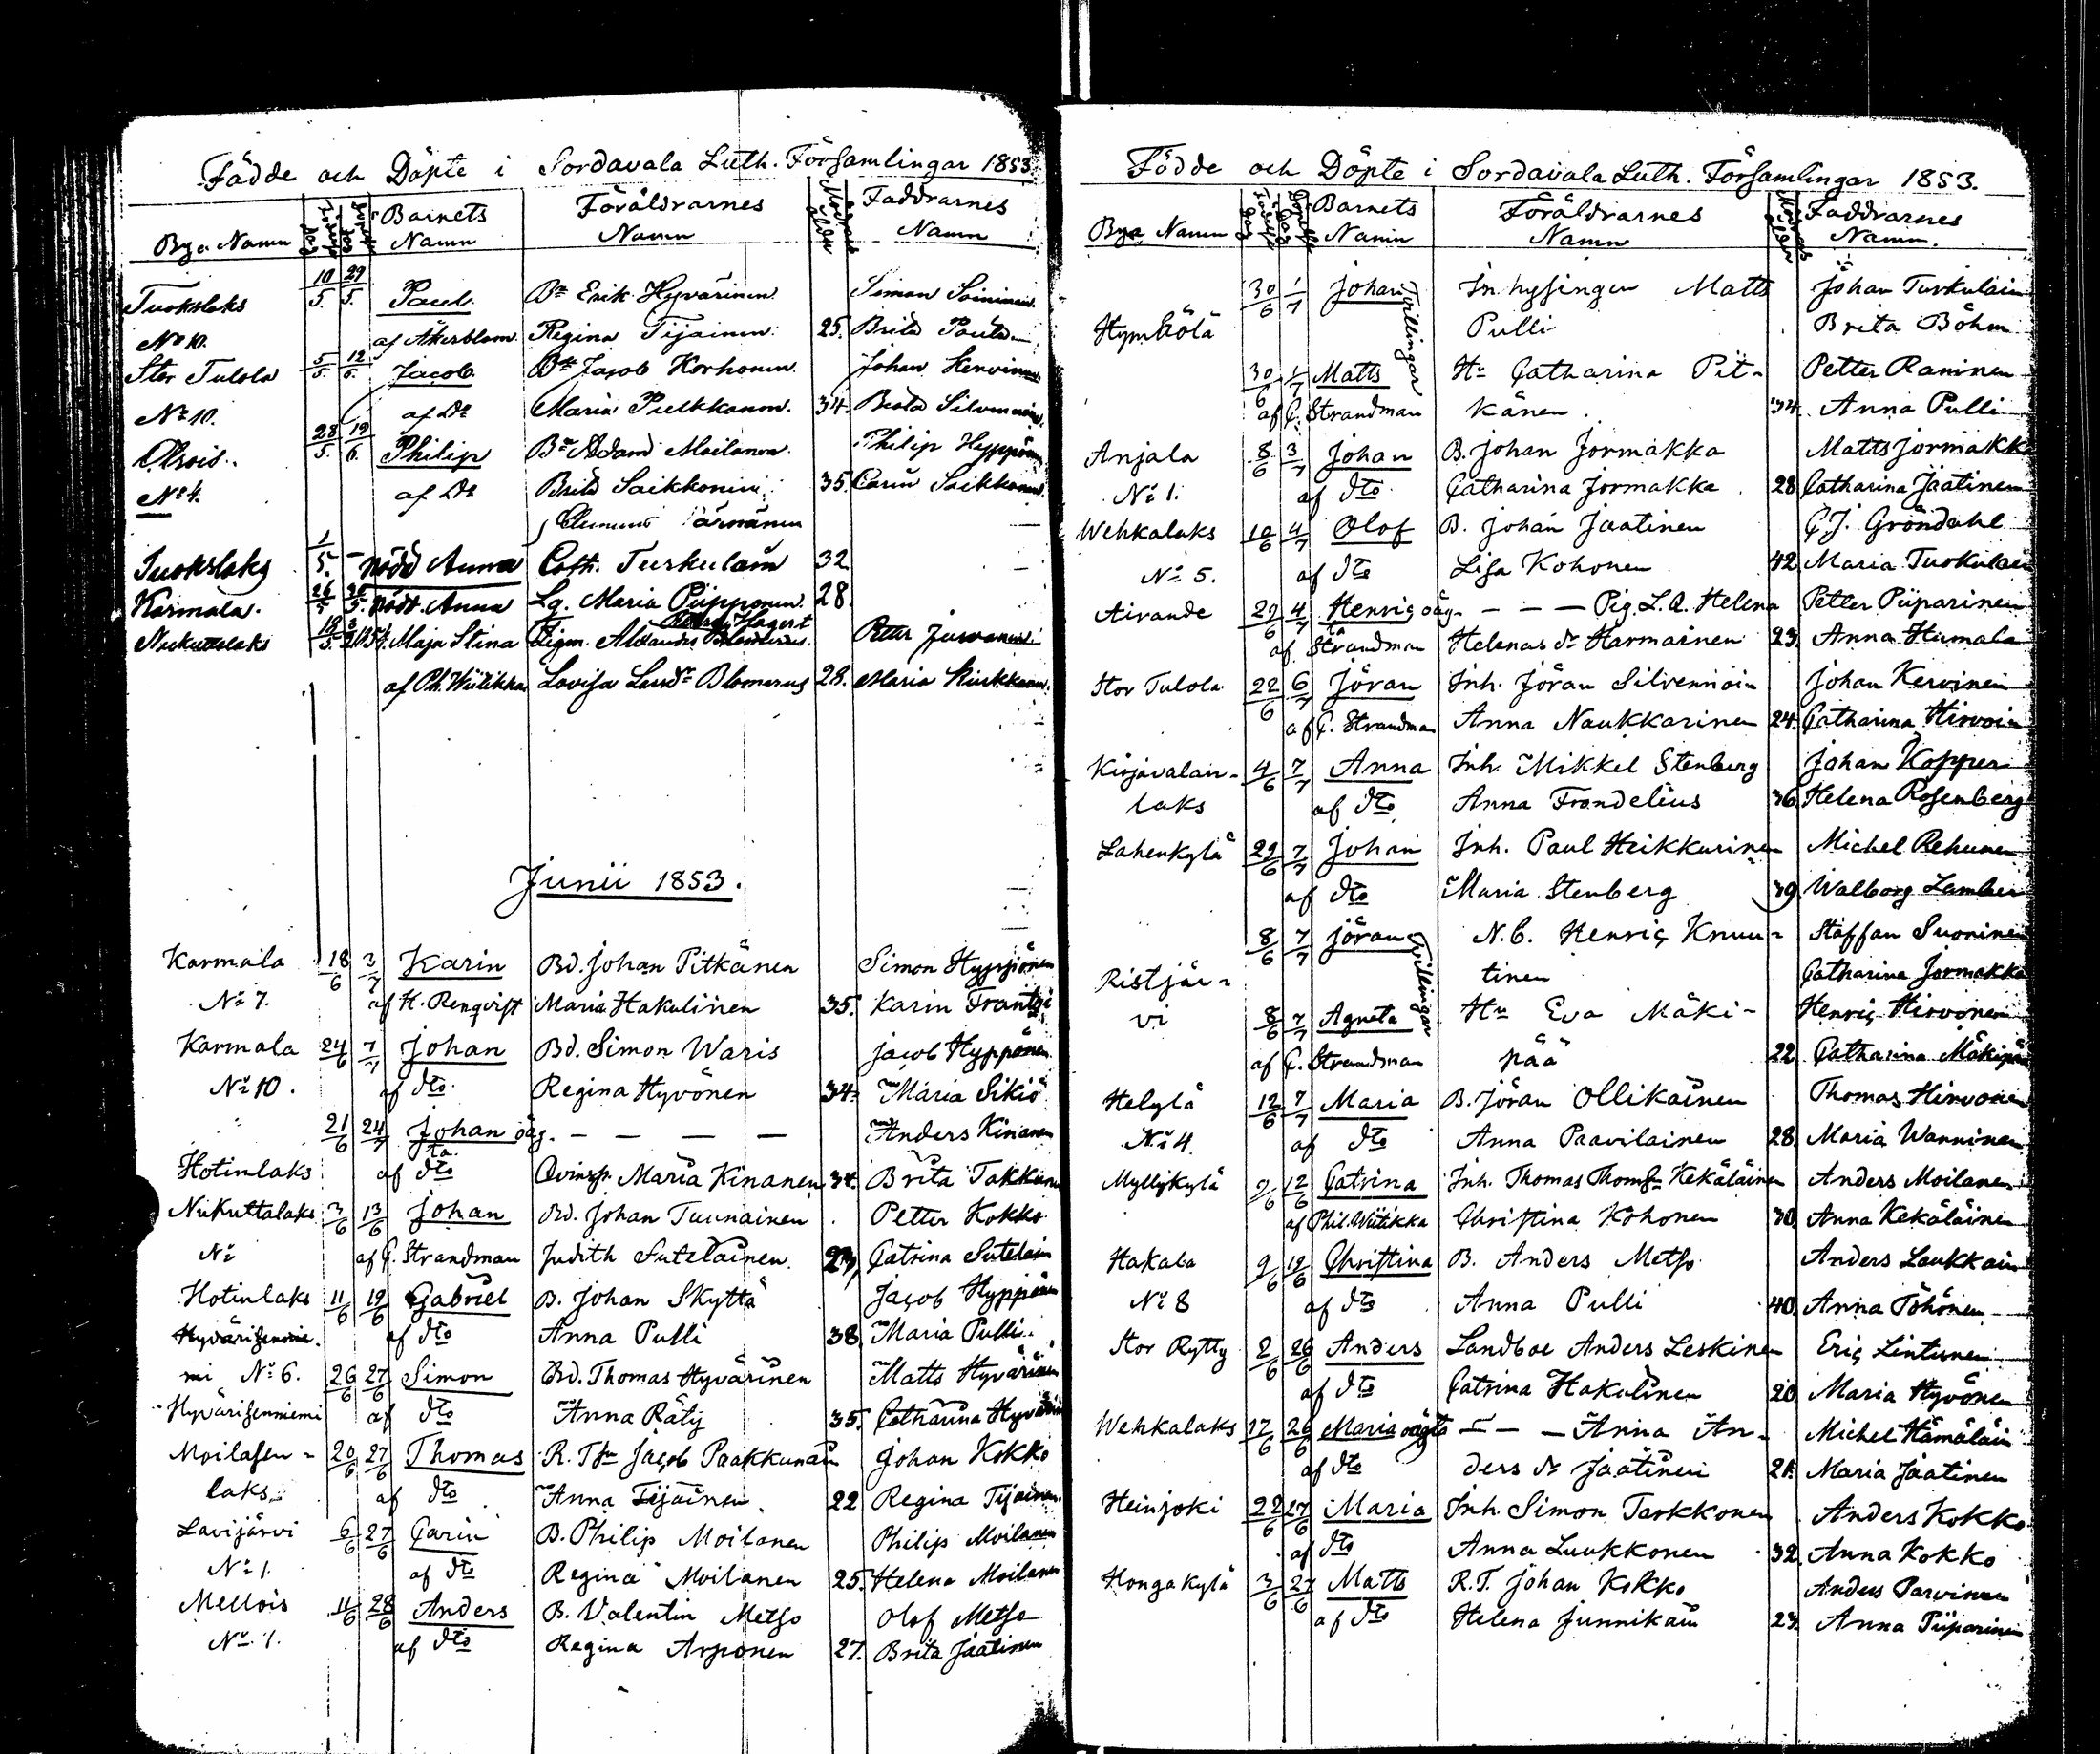 Födde och Döpte i Sordavala Luth. Församlingar 1853
Bya Namn Barnets Namn Föräldrarnes Namn Moders ålder Faddrarnes Namn
Tuokslaks 10/5 29/5 Paul Bn Erik Hyvärinen Simon Soininen
No 10. af Åkerblom Regina Tijainen 25. Brita
Stor Tulola 5/5 12/6 Jacob Bn Jacob Korhonen Johan Kervinen
No 10. af Do Maria Pulkkanen 34. Beata Silvennoin
28/5 19/6 Philip Bn Adam Moilanen Philip Hyppönen
No 4. af Do Brita Saikkonen 35. Carin Saikkonen
Tuokslaks 1/5 - nöðd Anna Cath. Turkulain 32
Karmala. 26/5 26/5 nödd. Anna Lq. Maria Piipponen. 28.
Niukuttalaks Maja Stina Petter Juvonen
af Ph. Wiitikka Lovisa Larsdr Blomerus 28. Maria Kiukkanen
Junii 1853.
Karmala 18/6 3/7 Karin Bd. Johan Pitkänen Simon Hyppönen
No 7. af H. Renqvist Maria Hakulinen 35. Karin Frantsi
Karmala 24/6 7/7 Johan Bd. Simon Waris Jacob Hyppönen
No 10. af dto Regina Hyvönen 34. Maria Sikiö
21/6 24/7 Johan oäg. — — — — Anders Kinanen
Hotinlaks af dto Qvinsp. Maria Kinanen 34. Brita Takkunen
Niukuttalaks 3/6 13/6 Johan Bd. Johan Tuunainen Petter Kokko
No af C. Strandman Judith Sutelainen 23, Catrina Sutelain
Hotinlaks 11/6 19/6 Gabriel B. Johan Skyttä Jacob Hyppönen
Hyvärisennie. af dto Anna Pulli 38. Maria Pulli
mi No 6. 26/6 27/6 Simon Bd. Thomas Hyvärinen Matts Hyvärinen
Hyvärisenniemi af dto Anna Räty 35. Catharina Hyvärin
Moilasen- 20/6 27/6 Thomas R. Tn Jacob Paakkunain Johan Kokko
laks af dto Anna Tijainen 22 Regina Tijainen
Lavijärvi 6/6 27/6 Carin B. Philip Moilanen Philip Moilanen
No 1. af dto Regina Moilanen 25. Helena Moilanen
Mellois 11/6 28/6 Anders B. Valentin Metso Olof Metso
No 1. af dto Regina Arponen 27. Brita Jaatinen
Födde och Döpte i Sordavala Luth. Församlingar 1853.
Bya Namn Födelse Dag Döpelse Dag Barnets Namn Föräldrarnes Namn Moders ålder Faddrarnes Namn.
30/6 1/7 Johan Tvillingar Inhysingen Matts Johan Turkulain
Hympölä Pulli Brita Böhm
30/6 1/7 Matts Hu Catharina Pit- Petter Raninen
af C. Strandman känen. 34. Anna Pulli
Anjala 8/6 3/7 Johan B. Johan Jormakka Matts Jormakk
No 1. af dto Catharina Jormakka 28 Catharina Jaatinen
Wehkalaks 10/6 4/7 Olof B. Johan Jaatinen C J. Gröndahl
No 5. af dto Lisa Kohonen 42. Maria Turkulain
Airande 29/6 4/7 Henric oäg- — — — Pig. L. Q. Helena Petter Piiparinen
af Strandman Helenas dr Harmainen 23. Anna Humala
Stor Tulola 22/6 6/7 Jöran Inh. Jöran Silvennoin Johan Kervinen
af C. Strandman Anna Naukkarinen 24. Catharina Hirvoin
Kirjavalan- 4/6 7/7 Anna Inh. Mikkel Stenberg Johan Kopper
laks af dto Anna Frondelius 36. Helena Rosenberg
Lahenkylä 29/6 7/7 Johan Inh. Paul Heikkurinen Michel Rehunen
af dto Maria Stenberg 39. Walborg Lamber
8/6 7/7 Jöran Tvillingar N. B. Henric Knuu- Staffan Suoninen
Ristjär- tinen Catharina Jormakka
vi 8/6 7/7 Agneta Hu Eva Mäki- Henric Hirvonen
af C. Strandman pää 22. Catharina Mäkipää
Helylä 12/6 7/7 Maria B. Jöran Ollikainen Thomas Hirvonen
No 4. af dto Anna Paavilainen 28. Maria Wanninen
Myllykylä 9/6 12/6 Catrina Inh. Thomas Thomsn Kekäläinen Anders Moilanen
af Phil. Wiitikka Christina Kohonen 30. Anna Kekäläinen
Hakala 9/6 19/6 Christina B. Anders Metso Anders Laukkain
No 8 af dto Anna Pulli 40. Anna Töhönen
Stor Rytty 2/6 26/6 Anders Landboe Anders Leskinen Eric Lintunen
af dto Catrina Hakulinen 20. Maria Hyvönen
Wehkalaks 17/6 26/6 Maria oägta — — — Anna An- Michel Hämäläin
af dto ders dr Jaatinen 21. Maria Jaatinen
Heinjoki 22/6 27/6 Maria Inh. Simon Tarkkonen Anders Kokko
af dto Anna Luukkonen 32. Anna Kokko
Honga kylä 3/6 27/6 Matts R. T. Johan Kokko Anders Parvinen
af dto Helena Junnikain 23. Anna Piiparinen